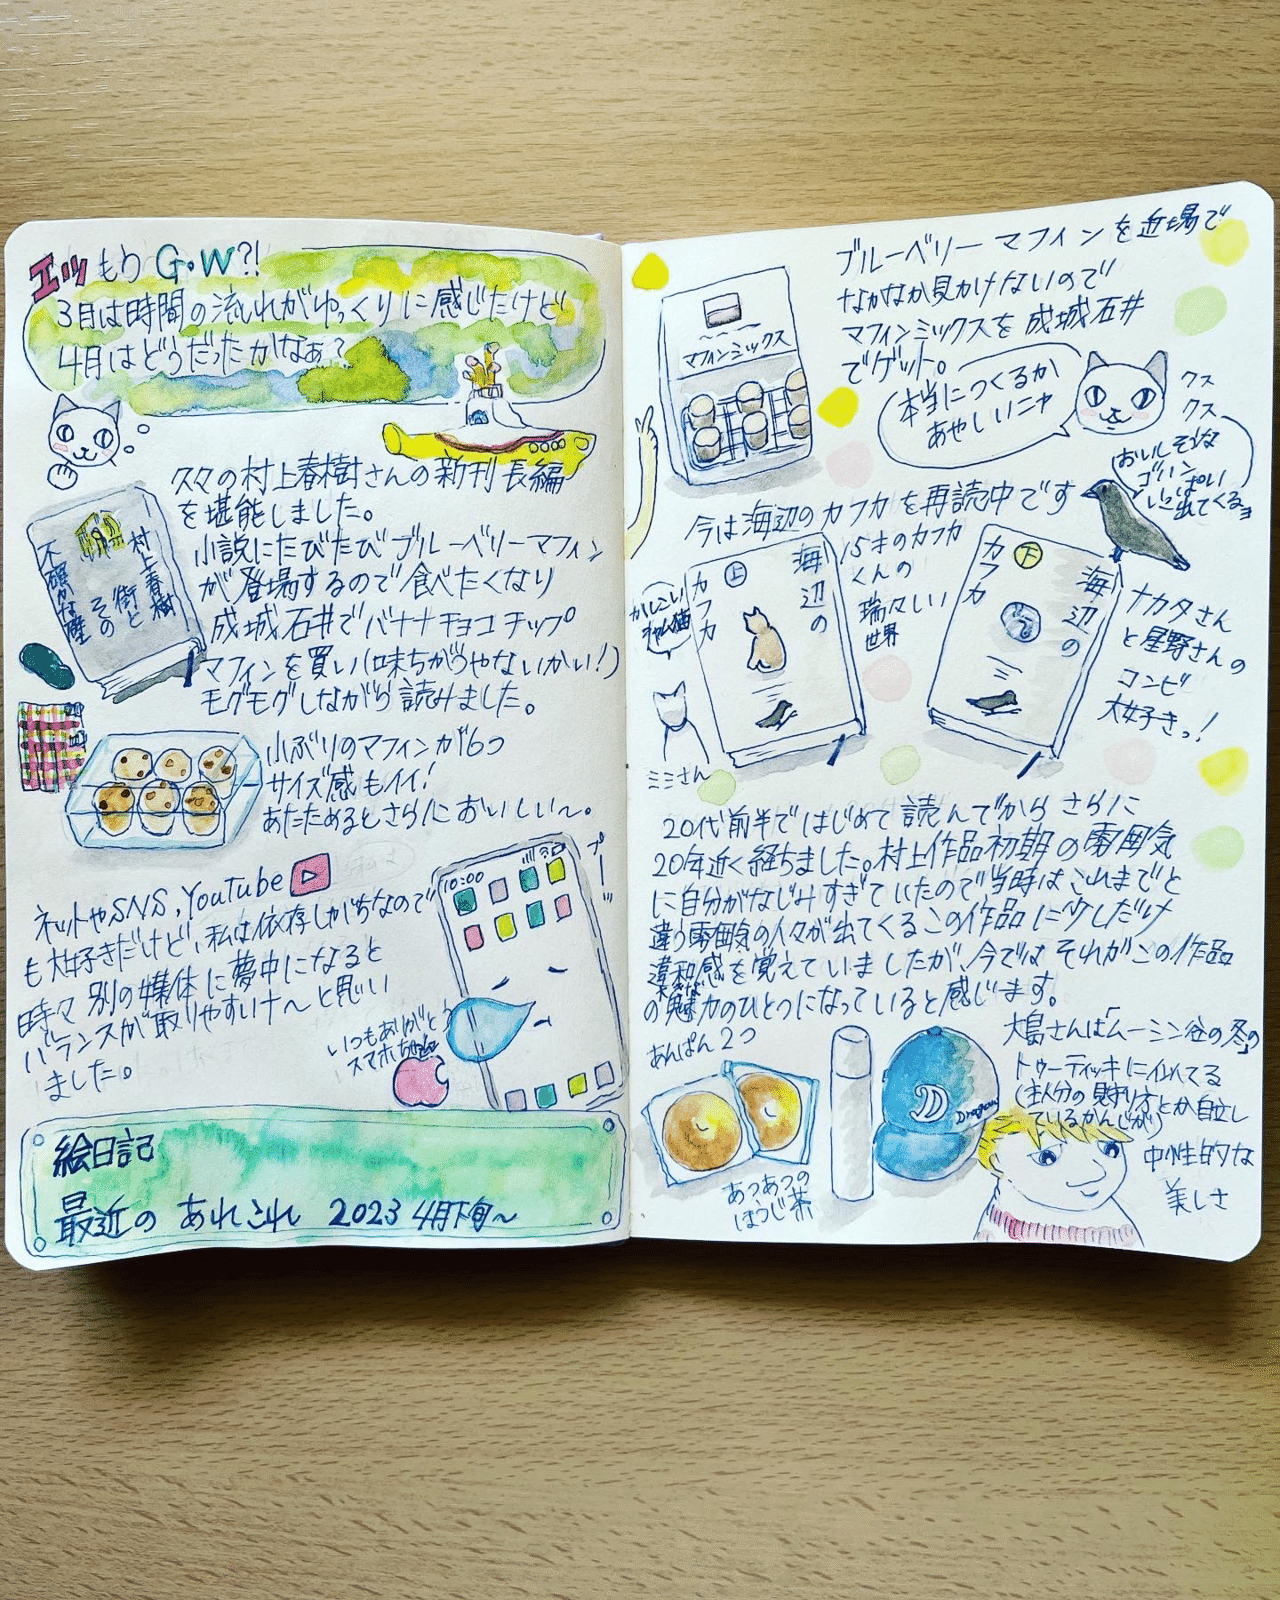 エッもうG・W?!
3月は時間の流れがゆっくりに感じたけど
4月はどうだったかなぁ?
久々の村上春樹さんの新刊長編
を堪能しました。
小説にたびたびブルーベリーマフィン
が登場するので食べたくなり
成城石井でバナナチョコチップ
マフィンを買い(味ちがうやないかい!)
モグモグしながら読みました。
村上春樹
街と
その
不確かな壁
小ぶりのマフィンが6つ
サイズ感もイイ!
あたためるとさらにおいしい〜。
ネットやSNS,YouTube
も大好きだけど、私は依存しがちなので
時々別の媒体に夢中になると
バランスが取りやすいナ〜と思い
ました。
10:00
いつもありがとう
スマホちゃん
絵日記
最近のあれこれ 2023 4月下旬〜
ブルーベリーマフィンを近場で
なかなか見かけないので
マフィンミックスを成城石井
でゲット。
マフィンミックス
本当につくるか
あやしいニャ
クス
クス
おいしそうな
ゴハン
いっぱい
出てくるヨ
今は海辺のカフカを再読中です
海辺の
カフカ
上
15才のカフカ
くんの
瑞々しい
世界
海辺の
カフカ
下
ナカタさん
と星野さんの
コンビ
大好きっ!
かしこい
シャム猫
ミミさん
20代前半ではじめて読んでからさらに
20年近く経ちました。村上作品初期の雰囲気
に自分がなじみすぎていたので当時はこれまでと
違う雰囲気の人々が出てくるこの作品に少しだけ
違和感を覚えていましたが、今ではそれがこの作品
の大きな魅力のひとつになっていると感じます。
あんぱん2つ
あつあつの
ほうじ茶
Dragons
大島さんは「ムーミン谷の冬」の
トゥーティッキに似てる
(主人公の見守り方とか自立し
ているかんじが)
中性的な
美しさ